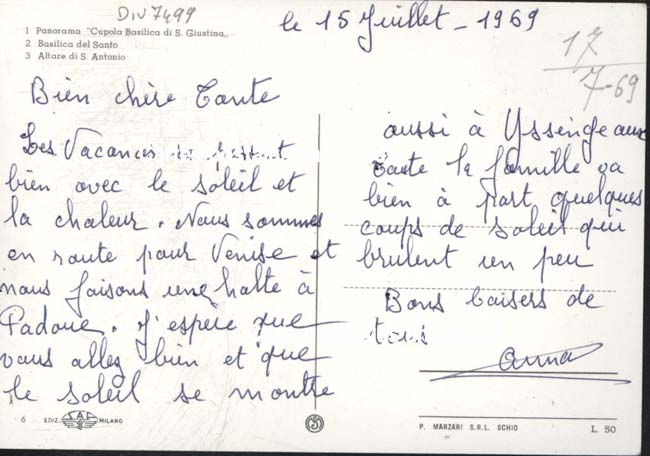 DIV7499
le 15 Juillet - 1969
1 Panorama "Cupola Basilica di S. Giustina,,
2 Basilica del Santo
3 Altare di S. Antonio
17
7-69
Bien chère Tante
Les Vacances se passent
bien avec le soleil et
la chaleur. Nous sommes
en route pour Venise et
nous faisons une halte à
Padoue. J'espère que
vous allez bien et que
le soleil se montre
aussi à Yssingeaux
toute la famille va
bien à part quelques
coups de soleil qui
brulent un peu
Bons baisers de
tous
6 EDIZ. SAF MILANO
P. MARZARI S.R.L. SCHIO
L. 50